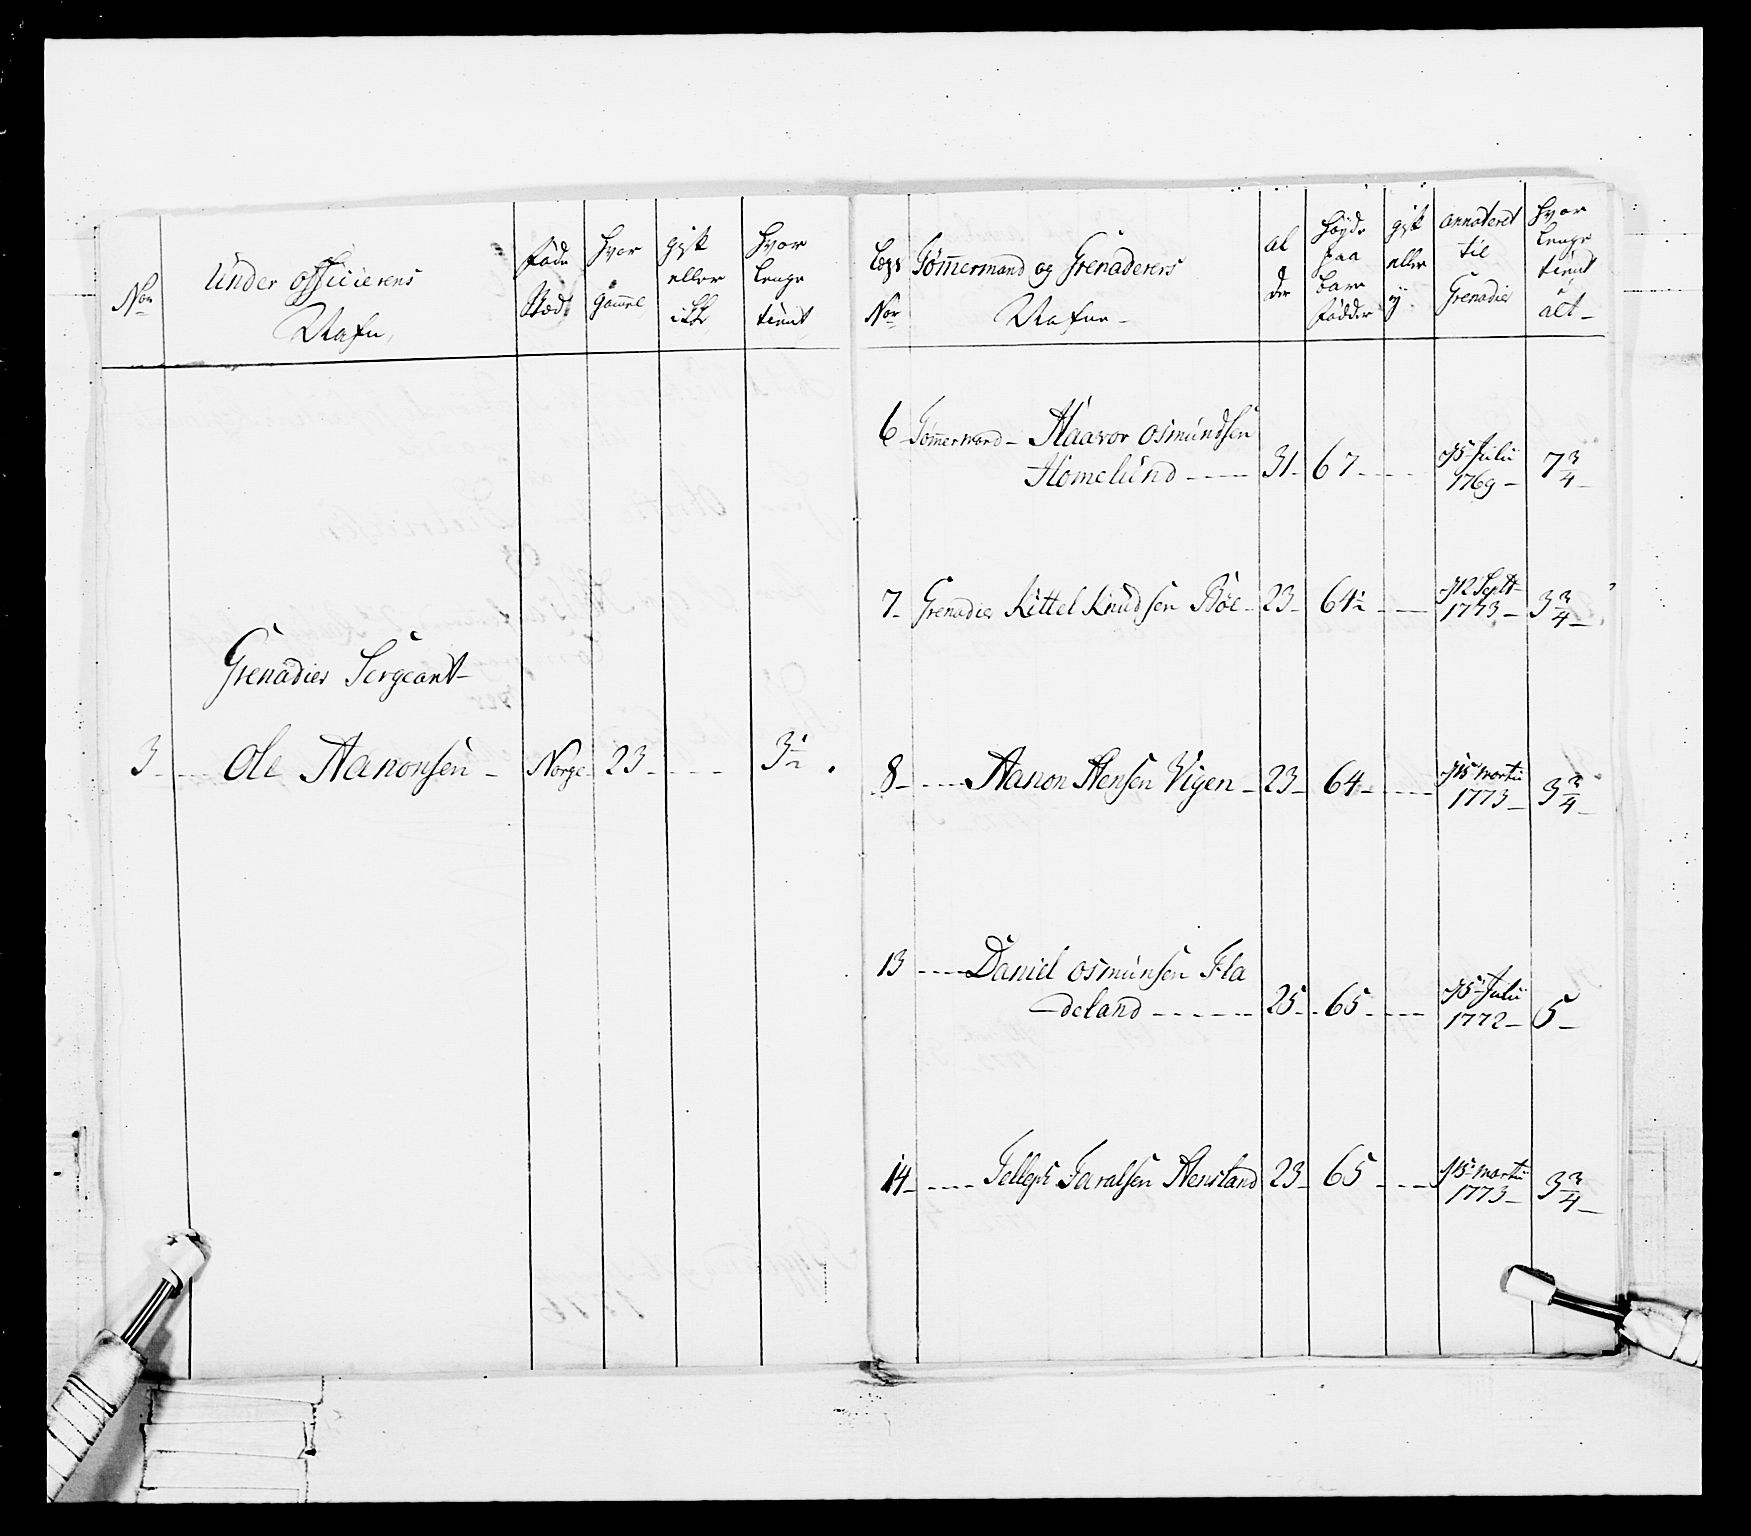 No=
Under officierens
Nafn,
Føde
Stæd
Hvor
gammel
gift
eller
ikke
Hvor
lenge
tient
Grenadier Sergeant
3 - Ole Aanonsen - Norge 23 - - - - 3 1/2
Comp
No=
Tømmermand og Grenaderers
Nafne -
al
der
Høyde
paa
bare
Fødder
gift
eller
ej
annoteret
til
Grenadier
Hvor
lenge
tient
alt -
6 Tømmermand - Haavor Osmundsen
Homelund - - - 31 - 67 - - - d 5 Julii 1769 - 7 3/4 -
7 - Grenadier Kittel Knudsen Bøe - 23 - 64 1/2 - - d 12 Sept 1773 - 3 3/4 -
8 - - - - Aanon Stensen Vigen - 23 - 64 - - - - d 15 Martii 1773 - 3 3/4 -
13 - - - - Daniel Osmunsen Fla
deland - - - - - 25 - 65 - - - - d 5 Julii 1772 - 5 -
14 - - - - - Tellefs Taralsen Stensland 23 - 65 - - - d 15 Martii 1773 - 3 3/4 -